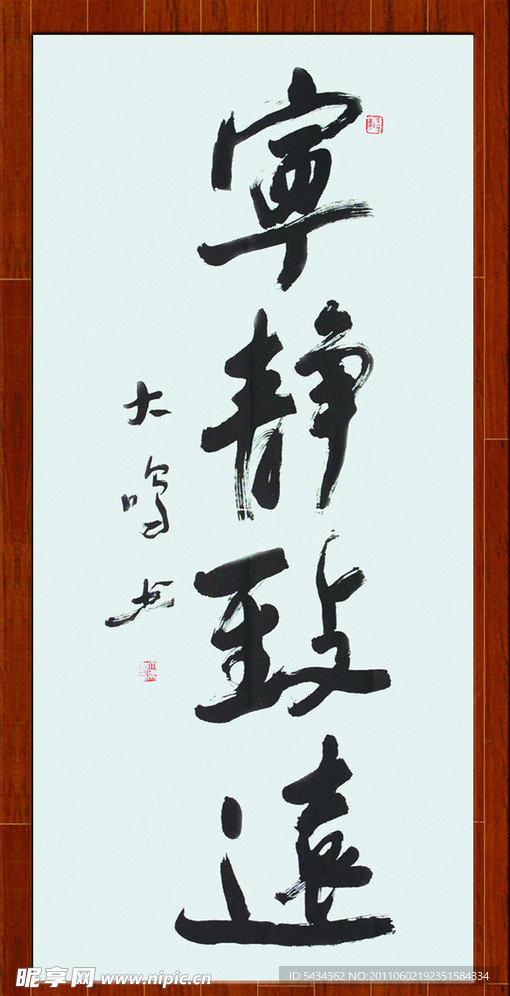 寧静致遠
大鸣书
昵享网 www.nipic.cn
ID:5434362 NO:20110602192351584334